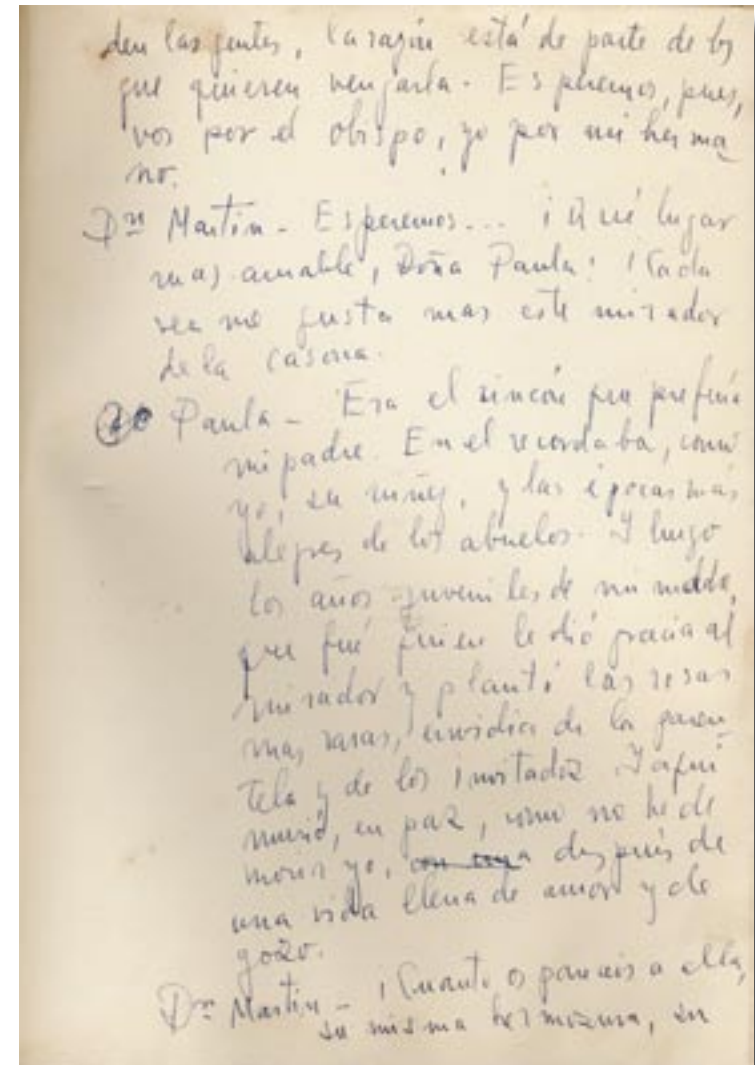 den las gentes, la razón está de parte de los
que quieren vengarla. Esperemos, pues,
vos por el obispo, yo por mi herma
no.
Dn Martin - Esperemos... ¡Qué lugar
mas amable, Doña Paula! ¡Cada
vez me gusta mas este mirador
de la casona.
Paula - Era el rincón que prefería
mi padre. En el recordaba, como
yo, su niñez, y las épocas más
alegres de los abuelos. Y luego
los años juveniles de mi madre,
que fué quien le dió gracia al
mirador y plantó las rosas
mas raras, envidia de la paren
tela y de los invitados. Y aquí
murió, en paz, como no he de
morir yo, después de
una vida llena de amor y de
gozo.
Dn Martin - ¡Cuanto os pareceis a ella,
su misma hermosura, su